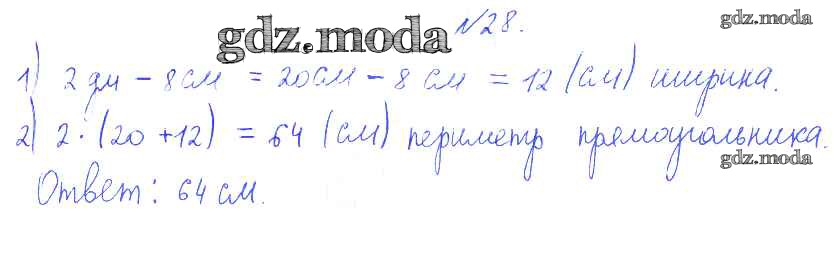 gdz.moda №28. gdz.moda
1) 2 дм - 8 см = 20 см - 8 см = 12 (см) ширина.
2) 2·(20+12) = 64 (см) периметр прямоугольника.
gdz.moda
Ответ: 64 см.